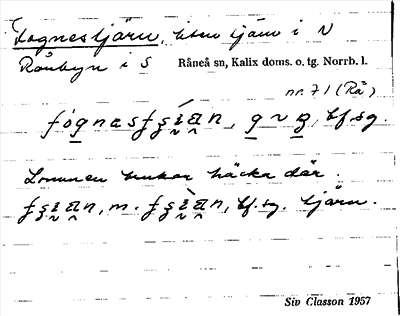 Fognestjärn, liten tjärn i N
Rånbyn i S Råneå sn, Kalix doms. o. tg. Norrb. l.
nr. 71 (Rå)
bf. sg.
Lommen brukar häcka där.
m. bf. sg. tjärn.
Siv Classon 1957